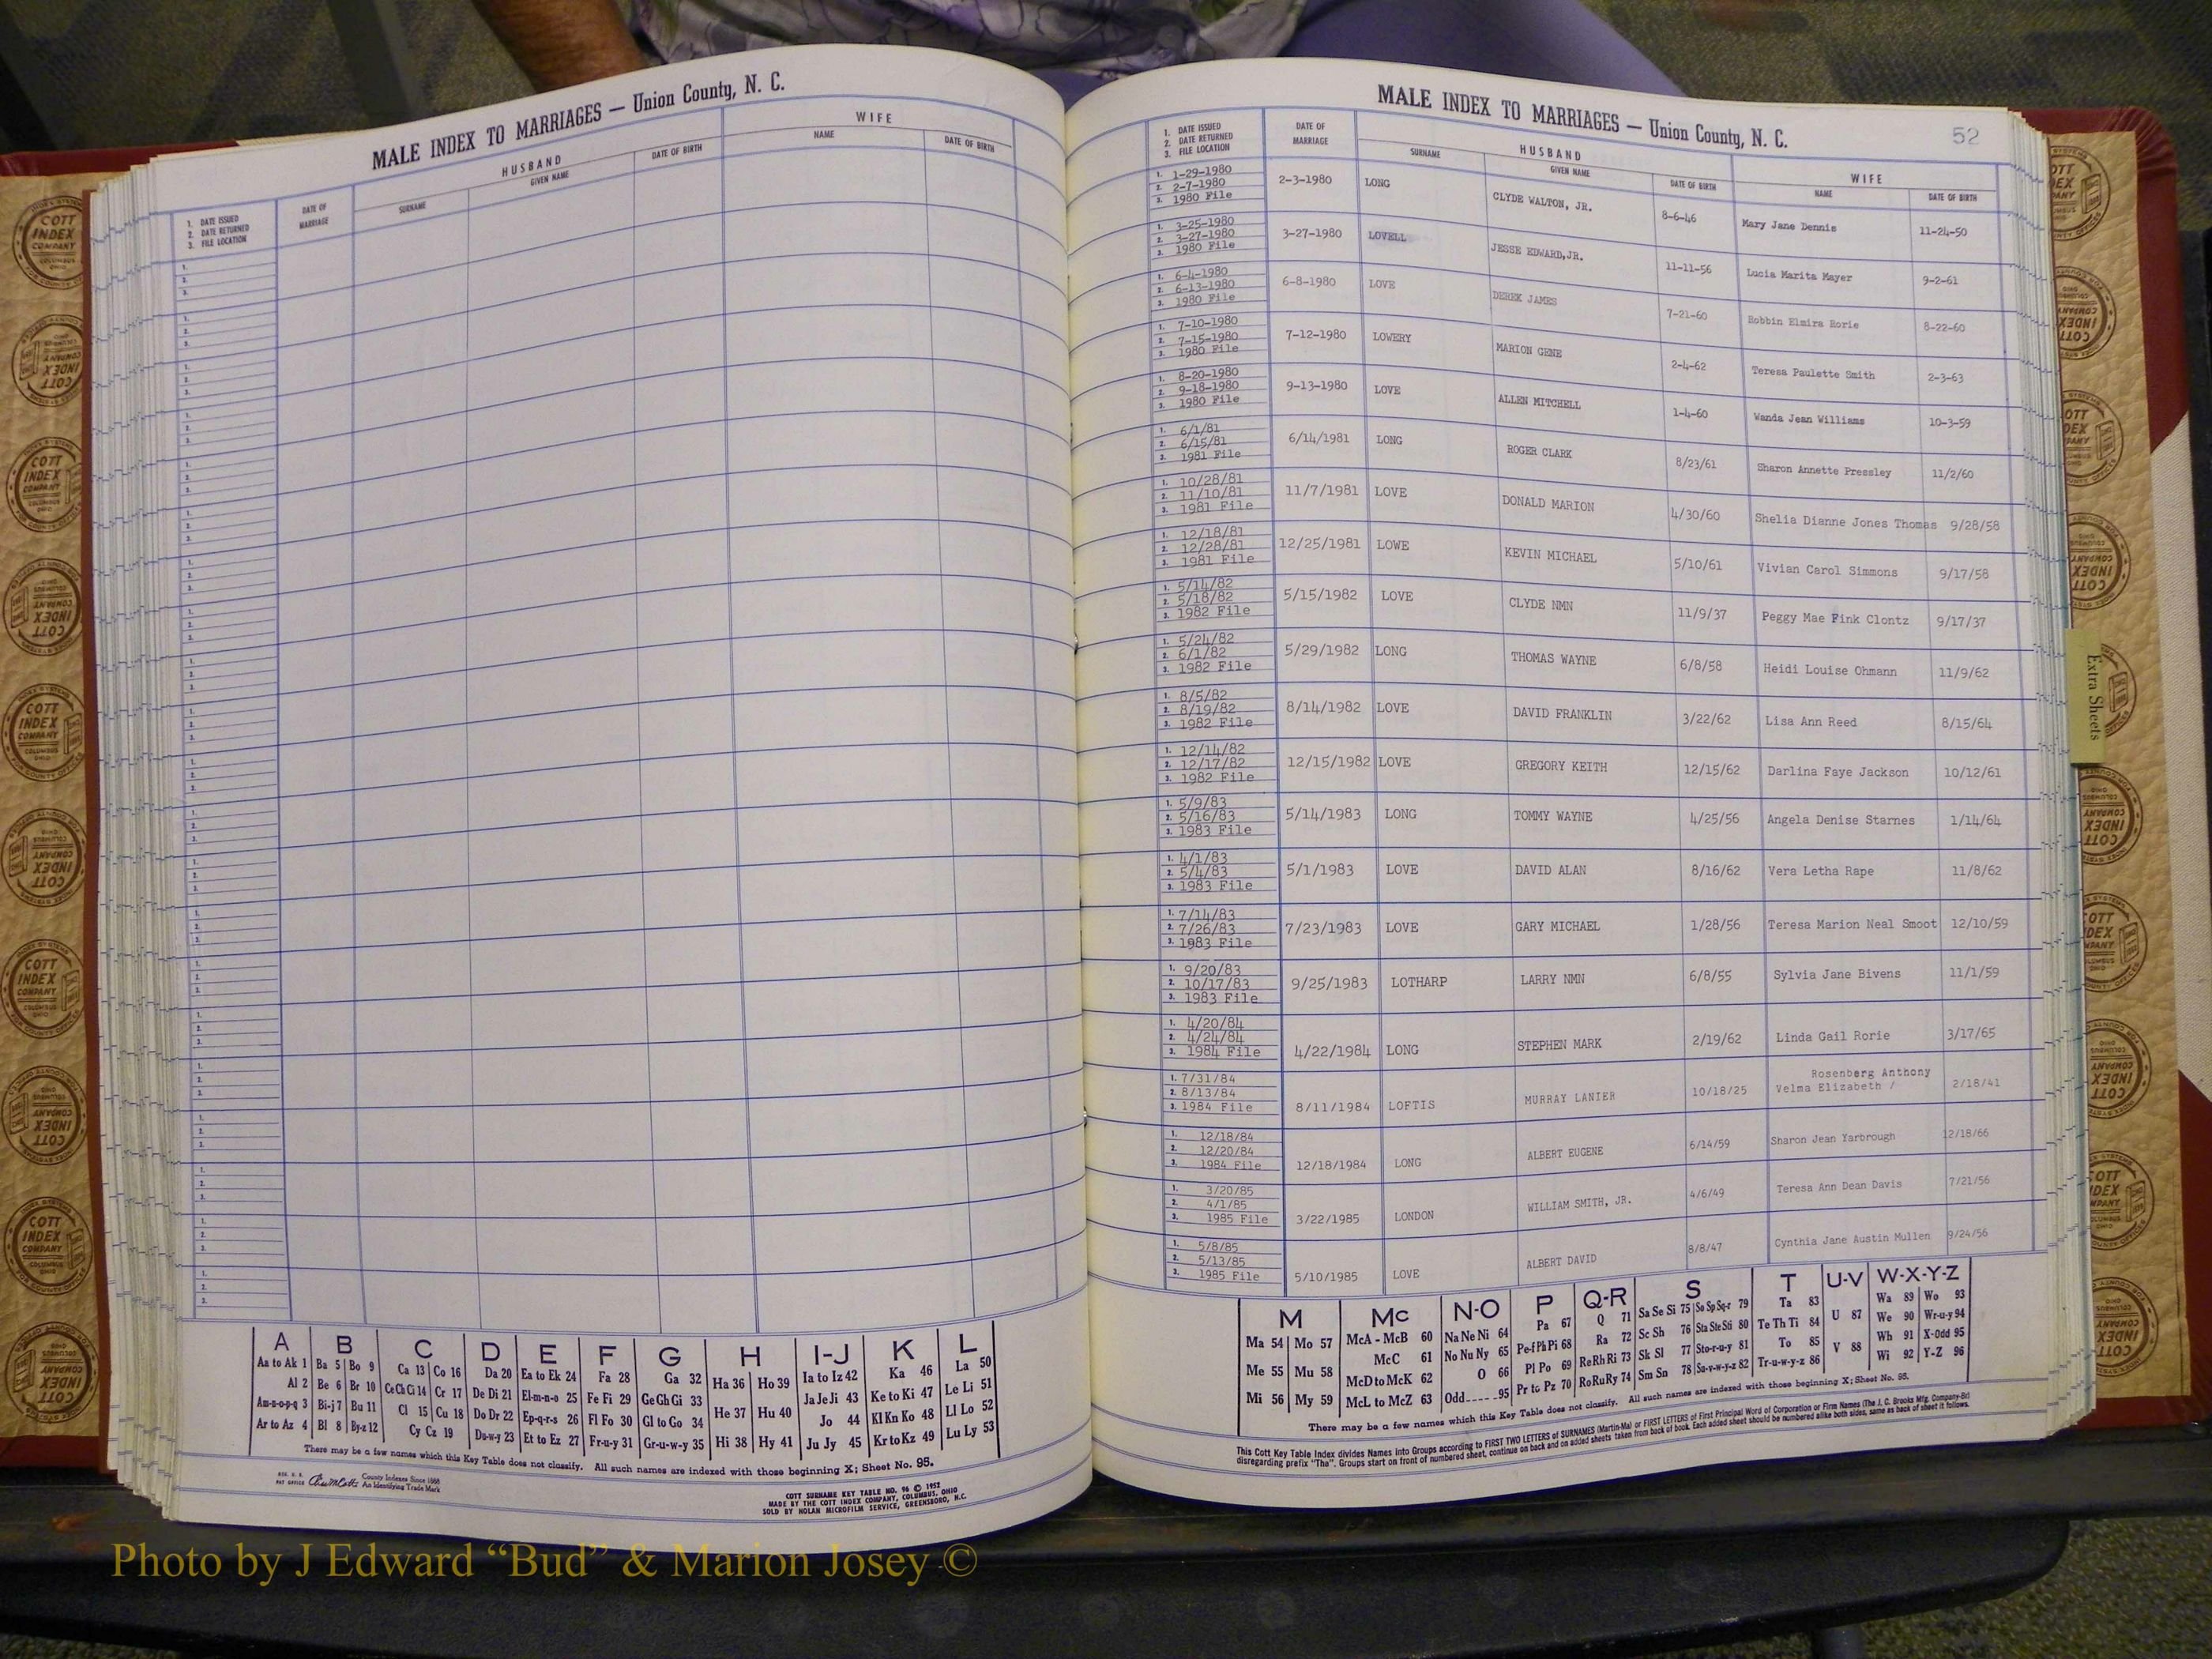 MALE INDEX TO MARRIAGES — Union County, N. C.
1. DATE ISSUED
2. DATE RETURNED
3. FILE LOCATION
DATE OF
MARRIAGE
HUSBAND
SURNAME
GIVEN NAME
DATE OF BIRTH
WIFE
NAME
DATE OF BIRTH
A B C D E F G H I-J K L
Aa to Ak 1 Ba 5 Bo 9 Ca 13 Co 16 Da 20 Ea to Ek 24 Fa 28 Ga 32 Ha 36 Ho 39 Ia to Iz 42 Ka 46 La 50
Al 2 Be 6 Br 10 Ce Ch Ci 14 Cr 17 De Di 21 El-m-n-o 25 Fe Fi 29 Ge Gh Gi 33 He 37 Hu 40 Ja Je Ji 43 Ke to Ki 47 Le Li 51
Am-n-o-p-q 3 Bi-j 7 Bu 11 Cl 15 Cu 18 Do Dr 22 Ep-q-r-s 26 Fl Fo 30 Gl to Go 34 Jo 44 Kl Kn Ko 48 Ll Lo 52
Ar to Az 4 Bl 8 By-z 12 Cy Cz 19 Du-w-y 23 Et to Ez 27 Fr-u-y 31 Gr-u-w-y 35 Hi 38 Hy 41 Ju Jy 45 Kr to Kz 49 Lu Ly 53
There may be a few names which this Key Table does not classify. All such names are indexed with those beginning X; Sheet No. 95.
County Indexes Since 1888
An Identifying Trade Mark
COTT SURNAME KEY TABLE NO. 96 © 1952
MADE BY THE COTT INDEX COMPANY, COLUMBUS, OHIO
SOLD BY NOLAN MICROFILM SERVICE, GREENSBORO, N.C.
MALE INDEX TO MARRIAGES — Union County, N. C.
52
1. DATE ISSUED
2. DATE RETURNED
3. FILE LOCATION
DATE OF
MARRIAGE
HUSBAND
SURNAME
GIVEN NAME
DATE OF BIRTH
WIFE
NAME
DATE OF BIRTH
1. 1-29-1980
2. 2-7-1980
3. 1980 File
2-3-1980 LONG CLYDE WALTON, JR. 8-6-46 Mary Jane Dennis 11-24-50
1. 3-25-1980
2. 3-27-1980
3. 1980 File
3-27-1980 LOVELL JESSE EDWARD,JR. 11-11-56 Lucia Marita Mayer 9-2-61
1. 6-4-1980
2. 6-13-1980
3. 1980 File
6-8-1980 LOVE DEREK JAMES 7-21-60 Robbin Elmira Rorie 8-22-60
1. 7-10-1980
2. 7-15-1980
3. 1980 File
7-12-1980 LOWERY MARION GENE 2-4-62 Teresa Paulette Smith 2-3-63
1. 8-20-1980
2. 9-18-1980
3. 1980 File
9-13-1980 LOVE ALLEN MITCHELL 1-4-60 Wanda Jean Williams 10-3-59
1. 6/1/81
2. 6/15/81
3. 1981 File
6/14/1981 LONG ROGER CLARK 8/23/61 Sharon Annette Pressley 11/2/60
1. 10/28/81
2. 11/10/81
3. 1981 File
11/7/1981 LOVE DONALD MARION 4/30/60 Shelia Dianne Jones Thomas 9/28/58
1. 12/18/81
2. 12/28/81
3. 1981 File
12/25/1981 LOWE KEVIN MICHAEL 5/10/61 Vivian Carol Simmons 9/17/58
1. 5/14/82
2. 5/18/82
3. 1982 File
5/15/1982 LOVE CLYDE NMN 11/9/37 Peggy Mae Fink Clontz 9/17/37
1. 5/24/82
2. 6/1/82
3. 1982 File
5/29/1982 LONG THOMAS WAYNE 6/8/58 Heidi Louise Ohmann 11/9/62
1. 8/5/82
2. 8/19/82
3. 1982 File
8/14/1982 LOVE DAVID FRANKLIN 3/22/62 Lisa Ann Reed 8/15/64
1. 12/14/82
2. 12/17/82
3. 1982 File
12/15/1982 LOVE GREGORY KEITH 12/15/62 Darlina Faye Jackson 10/12/61
1. 5/9/83
2. 5/16/83
3. 1983 File
5/14/1983 LONG TOMMY WAYNE 4/25/56 Angela Denise Starnes 1/14/64
1. 4/1/83
2. 5/4/83
3. 1983 File
5/1/1983 LOVE DAVID ALAN 8/16/62 Vera Letha Rape 11/8/62
1. 7/14/83
2. 7/26/83
3. 1983 File
7/23/1983 LOVE GARY MICHAEL 1/28/56 Teresa Marion Neal Smoot 12/10/59
1. 9/20/83
2. 10/17/83
3. 1983 File
9/25/1983 LOTHARP LARRY NMN 6/8/55 Sylvia Jane Bivens 11/1/59
1. 4/20/84
2. 4/24/84
3. 1984 File
4/22/1984 LONG STEPHEN MARK 2/19/62 Linda Gail Rorie 3/17/65
1. 7/31/84
2. 8/13/84
3. 1984 File
Rosenberg Anthony
8/11/1984 LOFTIS MURRAY LANIER 10/18/25 Velma Elizabeth / 2/18/41
1. 12/18/84
2. 12/20/84
3. 1984 File
12/18/1984 LONG ALBERT EUGENE 6/14/59 Sharon Jean Yarbrough 12/18/66
1. 3/20/85
2. 4/1/85
3. 1985 File
3/22/1985 LONDON WILLIAM SMITH, JR. 4/6/49 Teresa Ann Dean Davis 7/21/56
1. 5/8/85
2. 5/13/85
3. 1985 File
5/10/1985 LOVE ALBERT DAVID 8/8/47 Cynthia Jane Austin Mullen 9/24/56
M Mc N-O P Q-R S T U-V W-X-Y-Z
Ma 54 Mo 57 McA - McB 60 Na Ne Ni 64 Pa 67 Q 71 Sa Se Si 75 So Sp Sq-r 79 Ta 83 U 87 Wa 89 Wo 93
Me 55 Mu 58 McC 61 No Nu Ny 65 Pe-f Ph Pi 68 Ra 72 Sc Sh 76 Sta Ste Sti 80 Te Th Ti 84 We 90 Wr-u-y 94
McD to McK 62 O 66 Pl Po 69 Re Rh Ri 73 Sk Sl 77 Sto-r-u-y 81 To 85 V 88 Wh 91 X-Odd 95
Mi 56 My 59 McL to McZ 63 Odd 95 Pr to Pz 70 Ro Ru Ry 74 Sm Sn 78 Su-v-w-y-z 82 Tr-u-w-y-z 86 Wi 92 Y-Z 96
There may be a few names which this Key Table does not classify. All such names are indexed with those beginning X; Sheet No. 95.
This Cott Key Table Index divides Names into Groups according to FIRST TWO LETTERS of SURNAMES (Martin-Ma) or FIRST LETTERS of First Principal Word of Corporation or Firm Names (The J. C. Brooks Mfg. Company-Br)
disregarding prefix "The". Groups start on front of numbered sheet, continue on back and on added sheets taken from back of book. Each added sheet should be numbered alike both sides, same as back of sheet it follows.
Extra Sheets
COTT
INDEX
COMPANY
COLUMBUS
OHIO
Photo by J Edward “Bud” & Marion Josey ©